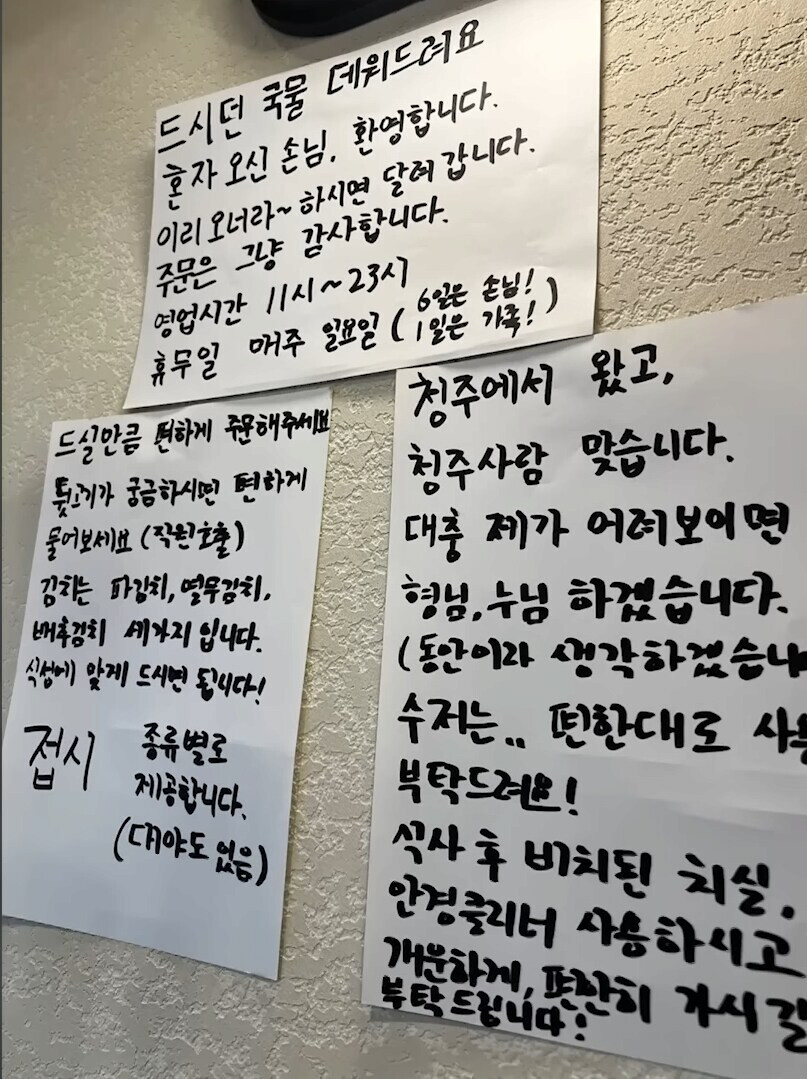 드시던 국물 데워드려요
혼자 오신 손님, 환영합니다.
이리 오너라~ 하시면 달려 갑니다.
주문은 그냥 감사합니다.
영업시간 11시~23시
휴무일 매주 일요일 (6일은 손님!
1일은 가족!)
드실만큼 편하게 주문해주세요
뒷고기가 궁금하시면 편하게
물어보세요 (직원호출)
김치는 파김치, 열무김치,
배추김치 세가지 입니다.
식성에 맞게 드시면 됩니다!
접시 종류별로
제공합니다.
(대야도 있음)
청주에서 왔고,
청주사람 맞습니다.
대충 제가 어려보이면
형님, 누님 하겠습니다.
(동안이라 생각하겠습니
수저는.. 편한대로 사용
부탁드려요!
식사 후 비치된 치실,
안경클리너 사용하시고
개운하게, 편안히 가시길
부탁드립니다!